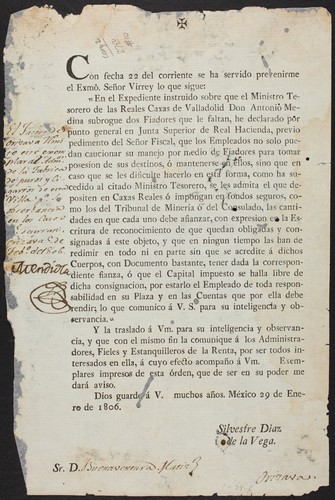 Con fecha 22 del corriente se ha servido prevenirme
el Exmô. Señor Virrey lo que sigue:
"En el Expediente instruido sobre que el Ministro Te-
sorero de las Reales Caxas de Valladolid Don Antonio Me-
dina subrogue dos Fiadores que le faltan, he declarado por
punto general en Junta Superior de Real Hacienda, previo
pedimento del Señor Fiscal, que los Empleados no solo pue-
dan caucionar su manejo por medio de Fiadores para tomar
posesion de sus destinos, ó mantenerse en ellos, sino que en
caso que se les dificulte hacerlo en esta forma, como ha su-
cedido al citado Ministro Tesorero, se les admita el que de-
positen en Caxas Reales ó impongan en fondos seguros, co-
mo los del Tribunal de Mineria ó del Consulado, las canti-
dades en que cada uno debe afianzar, con expresion en la Es-
critura de reconocimiento de que quedan obligadas y con-
signadas á este objeto, y que en ningun tiempo las han de
redimir en todo ni en parte sin que se acredite á dichos
Cuerpos, con Documento bastante, tener dada la correspon-
diente fianza, ó que el Capital impuesto se halla libre de
dicha consignacion, por estarlo el Empleado de toda respon-
sabilidad en su Plaza y en las Cuentas que por ella debe
rendir; lo que comunico á V. S. para su inteligencia y ob-
servancia."
Y la traslado á Vm. para su inteligencia y observan-
cia, y que con el mismo fin la comunique á los Administra-
dores, Fieles y Estanquilleros de la Renta, por ser todos in-
teresados en ella, á cuyo efecto acompaño á Vm. Exem-
plares impresos de esta órden, que de ser en su poder me
dará aviso.
Dios guarde á V. muchos años. México 29 de Ene-
ro de 1806.
Silvestre Diaz
de la Vega.
Sr. D. Buenaventura
Orizava
Mendiola